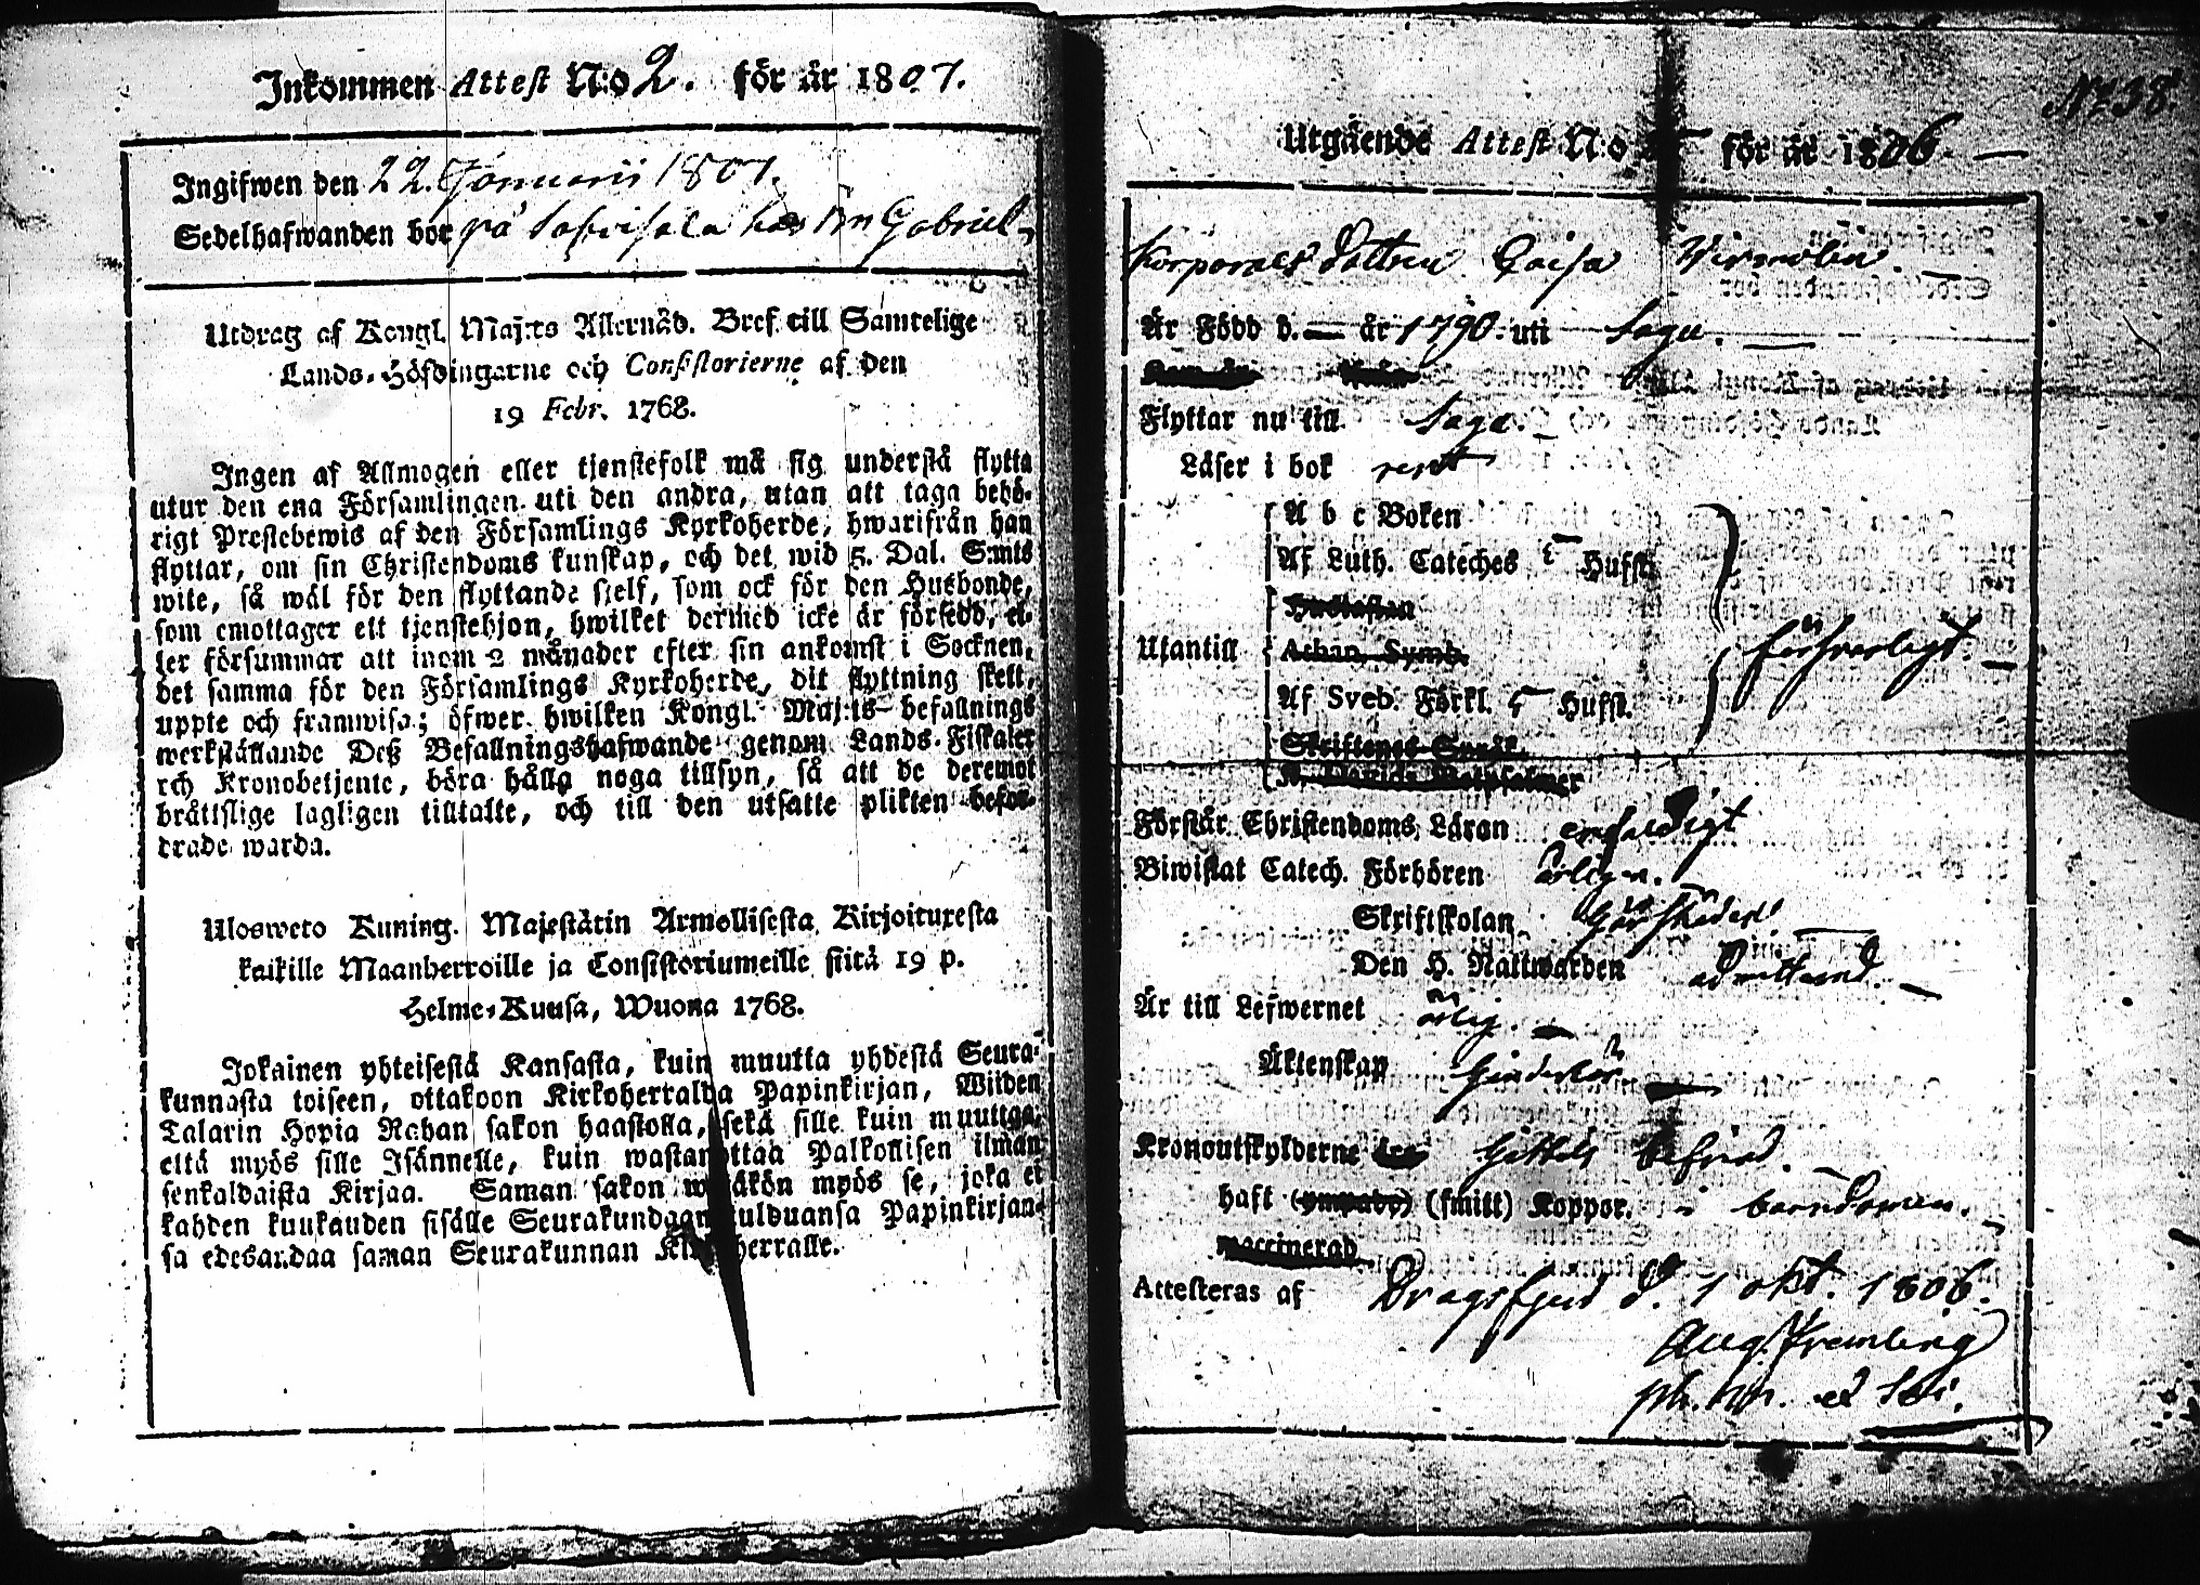 Inkommen Attest N:o 2. för år 1807.
Ingifwen den 22. Januarii 1807.
Sedelhafwanden bor på hos Bn Gabriel
Utdrag af Kongl. Maj:ts Allernåd. Bref till Samtelige
Lands-Höfdingarne och Consistorierne af den
19 Febr. 1768.
Ingen af Allmogen eller tjenstefolk må sig understå flytta
utur den ena Församlingen uti den andra, utan att taga behö-
rigt Prestebewis af den Församlings Kyrkoherde, hwarifrån han
flyttar, om sin Christendoms kunskap, och det wid 5. Dal. S:mts
wite, så wäl för den flyttande sjelf, som ock för den Husbonde,
som emottager ett tjenstehjon, hwilket dermed icke är försedd, el-
ler försummar att inom 2 månader efter sin ankomst i Socknen,
det samma för den Församlings Kyrkoherde, dit flyttning skett,
uppte och framwisa; öfwer hwilken Kongl. Maj:ts befallnings
werkställande Deß Befallningshafwande genom Lands-Fiskaler
och Kronobetjente, böra hålla noga tillsyn, så att de deremot
bråttslige lagligen tilltalte, och till den utsatte plikten befor-
drade warda.
Ulosweto Kuning. Majestätin Armollisesta Kirjoituxesta
kaikille Maanherroille ja Consistoriumeille siitä 19 p.
Helme-Kuusa, Wuona 1768.
Jokainen yhteisestä Kansasta, kuin muutta yhdestä Seura-
kunnasta toiseen, ottakoon Kirkoherralda Papinkirjan, Wiiden
Talarin Hopia Rahan sakon haastolla, sekä sille kuin muuttaa,
että myös sille Isännelle, kuin wastanottaa Palkollisen ilman
senkaldaista Kirjaa. Saman sakon myös se, joka ei
kahden kuukauden sisälle Seurakundaan tulduansa Papinkirjan-
sa edesandaa saman Seurakunnan Kirkoherralle.
No 38.
Utgående Attest N:o för år 1806.
Korporals Dottren Caisa
Är Född d. — år 1790. uti Sagu.
Flyttar nu till Sagu.
Läser i bok rent
Utantill
A b c Boken
Af Luth. Cateches 5 Hufst.
Hustaflan
Athan. Symb.
Af Sveb. Förkl. 5 Hufst.
försvarligt.
Skriftenes Språk
K. Davids Botpsalmer
Förstår Christendoms Läran enfaldigt
Biwistat Catech. Förhören årligen.
Skriftskolan
Den H. Nattwarden admitterad.
Är till Lefwernet ärlig.
Äktenskap hinderlös
Kronoutskylderne befriad.
haft (ympade) (smitt) Koppor. i barndomen.
vaccinerad
Attesteras af Dragsfjerd d. 1 okt. 1806.
Aug.